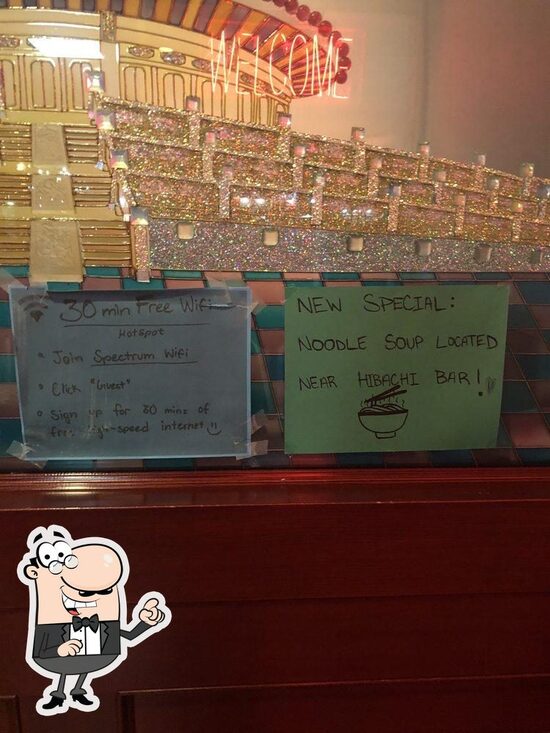 WELCOME
30 min Free Wifi
Hotspot
• Join Spectrum Wifi
• Click "Guest"
• Sign up for 30 mins of
free high-speed internet
NEW SPECIAL:
NOODLE SOUP LOCATED
NEAR HIBACHI BAR!